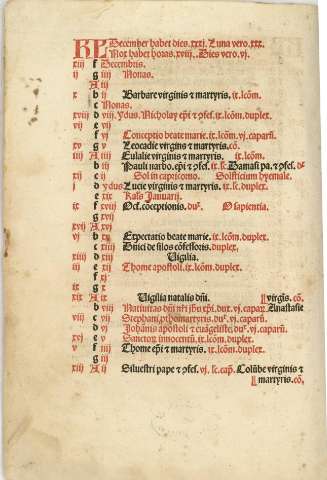 KL December habet dies .xxxj. Luna vero .xxx.
Nox habet horas .xviij. Dies vero .vj.
xiij f Decembris.
ij g iiij Nonas.
A iij
x b ij Barbare virginis & martyris. ix. lcõm.
c Nonas.
xviij d viij ydus. Nicholay epĩ & ꝯfes. ix. lcõm. duplex.
vij e vij
f vj Conceptio beate marie. ix. lcõm. vj. caparũ.
xv g v Leocadie virginis & martyris. cõ.
iiij A iiij Eulalie virginis & martyris. ix. lcõm.
b iij Pauli narbo. epĩ & ꝯfes. ix. lc. Damasi pa. & ꝯfes.
xij c ij Sol in capricorno. Solsticium hyemale.
j d ydus Lucie virginis & martyris. ix. lc. duplex.
e xix Kal's Januarij.
ix f xviij Oct. cõceptionis. du. O sapientia.
g xvij
xvij A xvj
vj b xv Expectatio beate marie. ix. lcõm. duplex.
c xiiij Dñici de silos cõfessoris. duplex.
xiiij d xiij Vigilia.
iij e xij Thome apostoli. ix. lcõm. duplex.
f xj
ix g x
xix A ix Vigilia natalis dñi. virgĩs. cõ.
b viij Natiuitas dñi nr̃i jh̃u xp̃i. dux. vj. capar. Anastasie
viij c vij Stephani pthomartyris. du. vj. caparũ.
d vj Johãnis apostoli & euãgeliste. du. vj. caparũ.
xvj e v Sanctor innocentũ. ix. lcõm. duplex.
v f iiij Thome epĩ & martyris. ix. lcõm. duplex.
g iij
xiij A ij Siluestri pape & ꝯfes. vj. lc. cap. Colũbe virginis &
martyris. cõ.